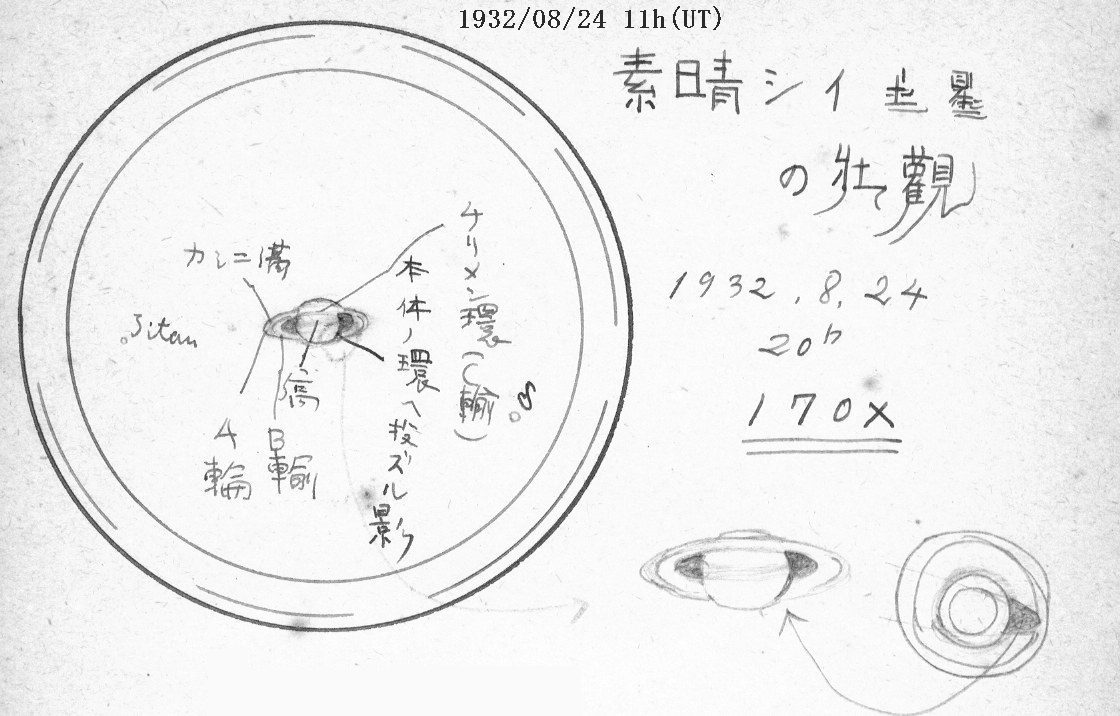 1932/08/24 11h(UT)
素晴シイ土星
の壮觀
1932.8.24
20h
170x
チリメン環(C輪)
本体ノ環ヘ投ズル影
カシニ溝
Titan
縞
A輪
B輪
8